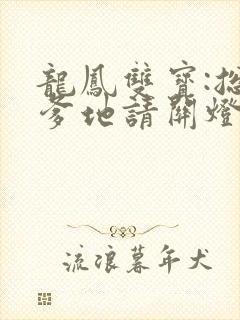 龍鳳雙寶:總
爹地請關燈
流浪暮年犬